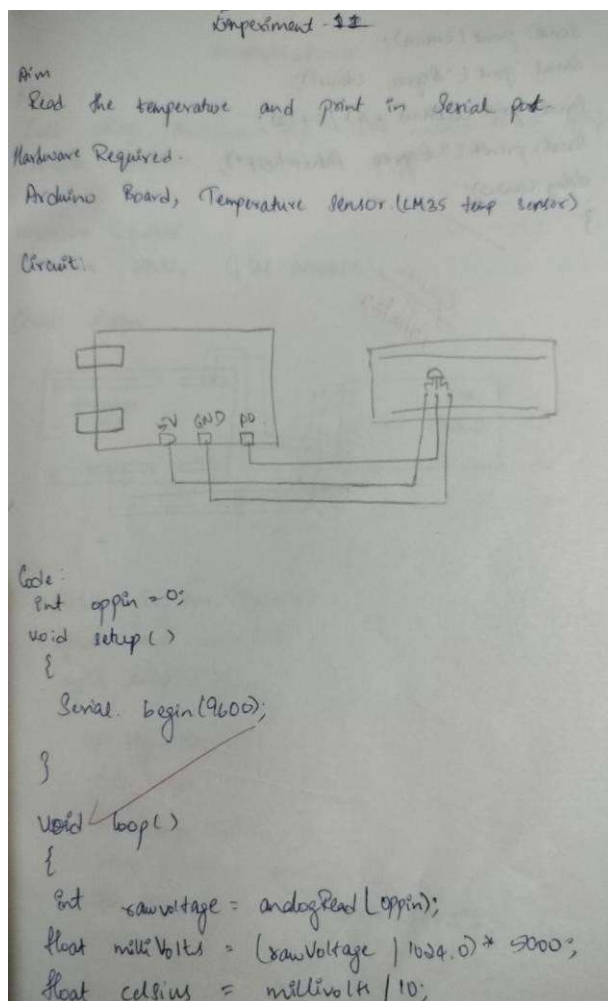 Experiment - 11
Aim
Read the temperature and print in Serial port.
Hardware Required.
Arduino Board, Temperature Sensor (LM35 temp sensor)
Circuit:
5V GND A0
Code:
int oppin = 0;
void setup()
{
Serial. begin(9600);
}
void loop()
{
int rawvoltage = analogRead(oppin);
float milliVolts = (rawVoltage / 1024.0) * 5000;
float celsius = millivolts / 10;